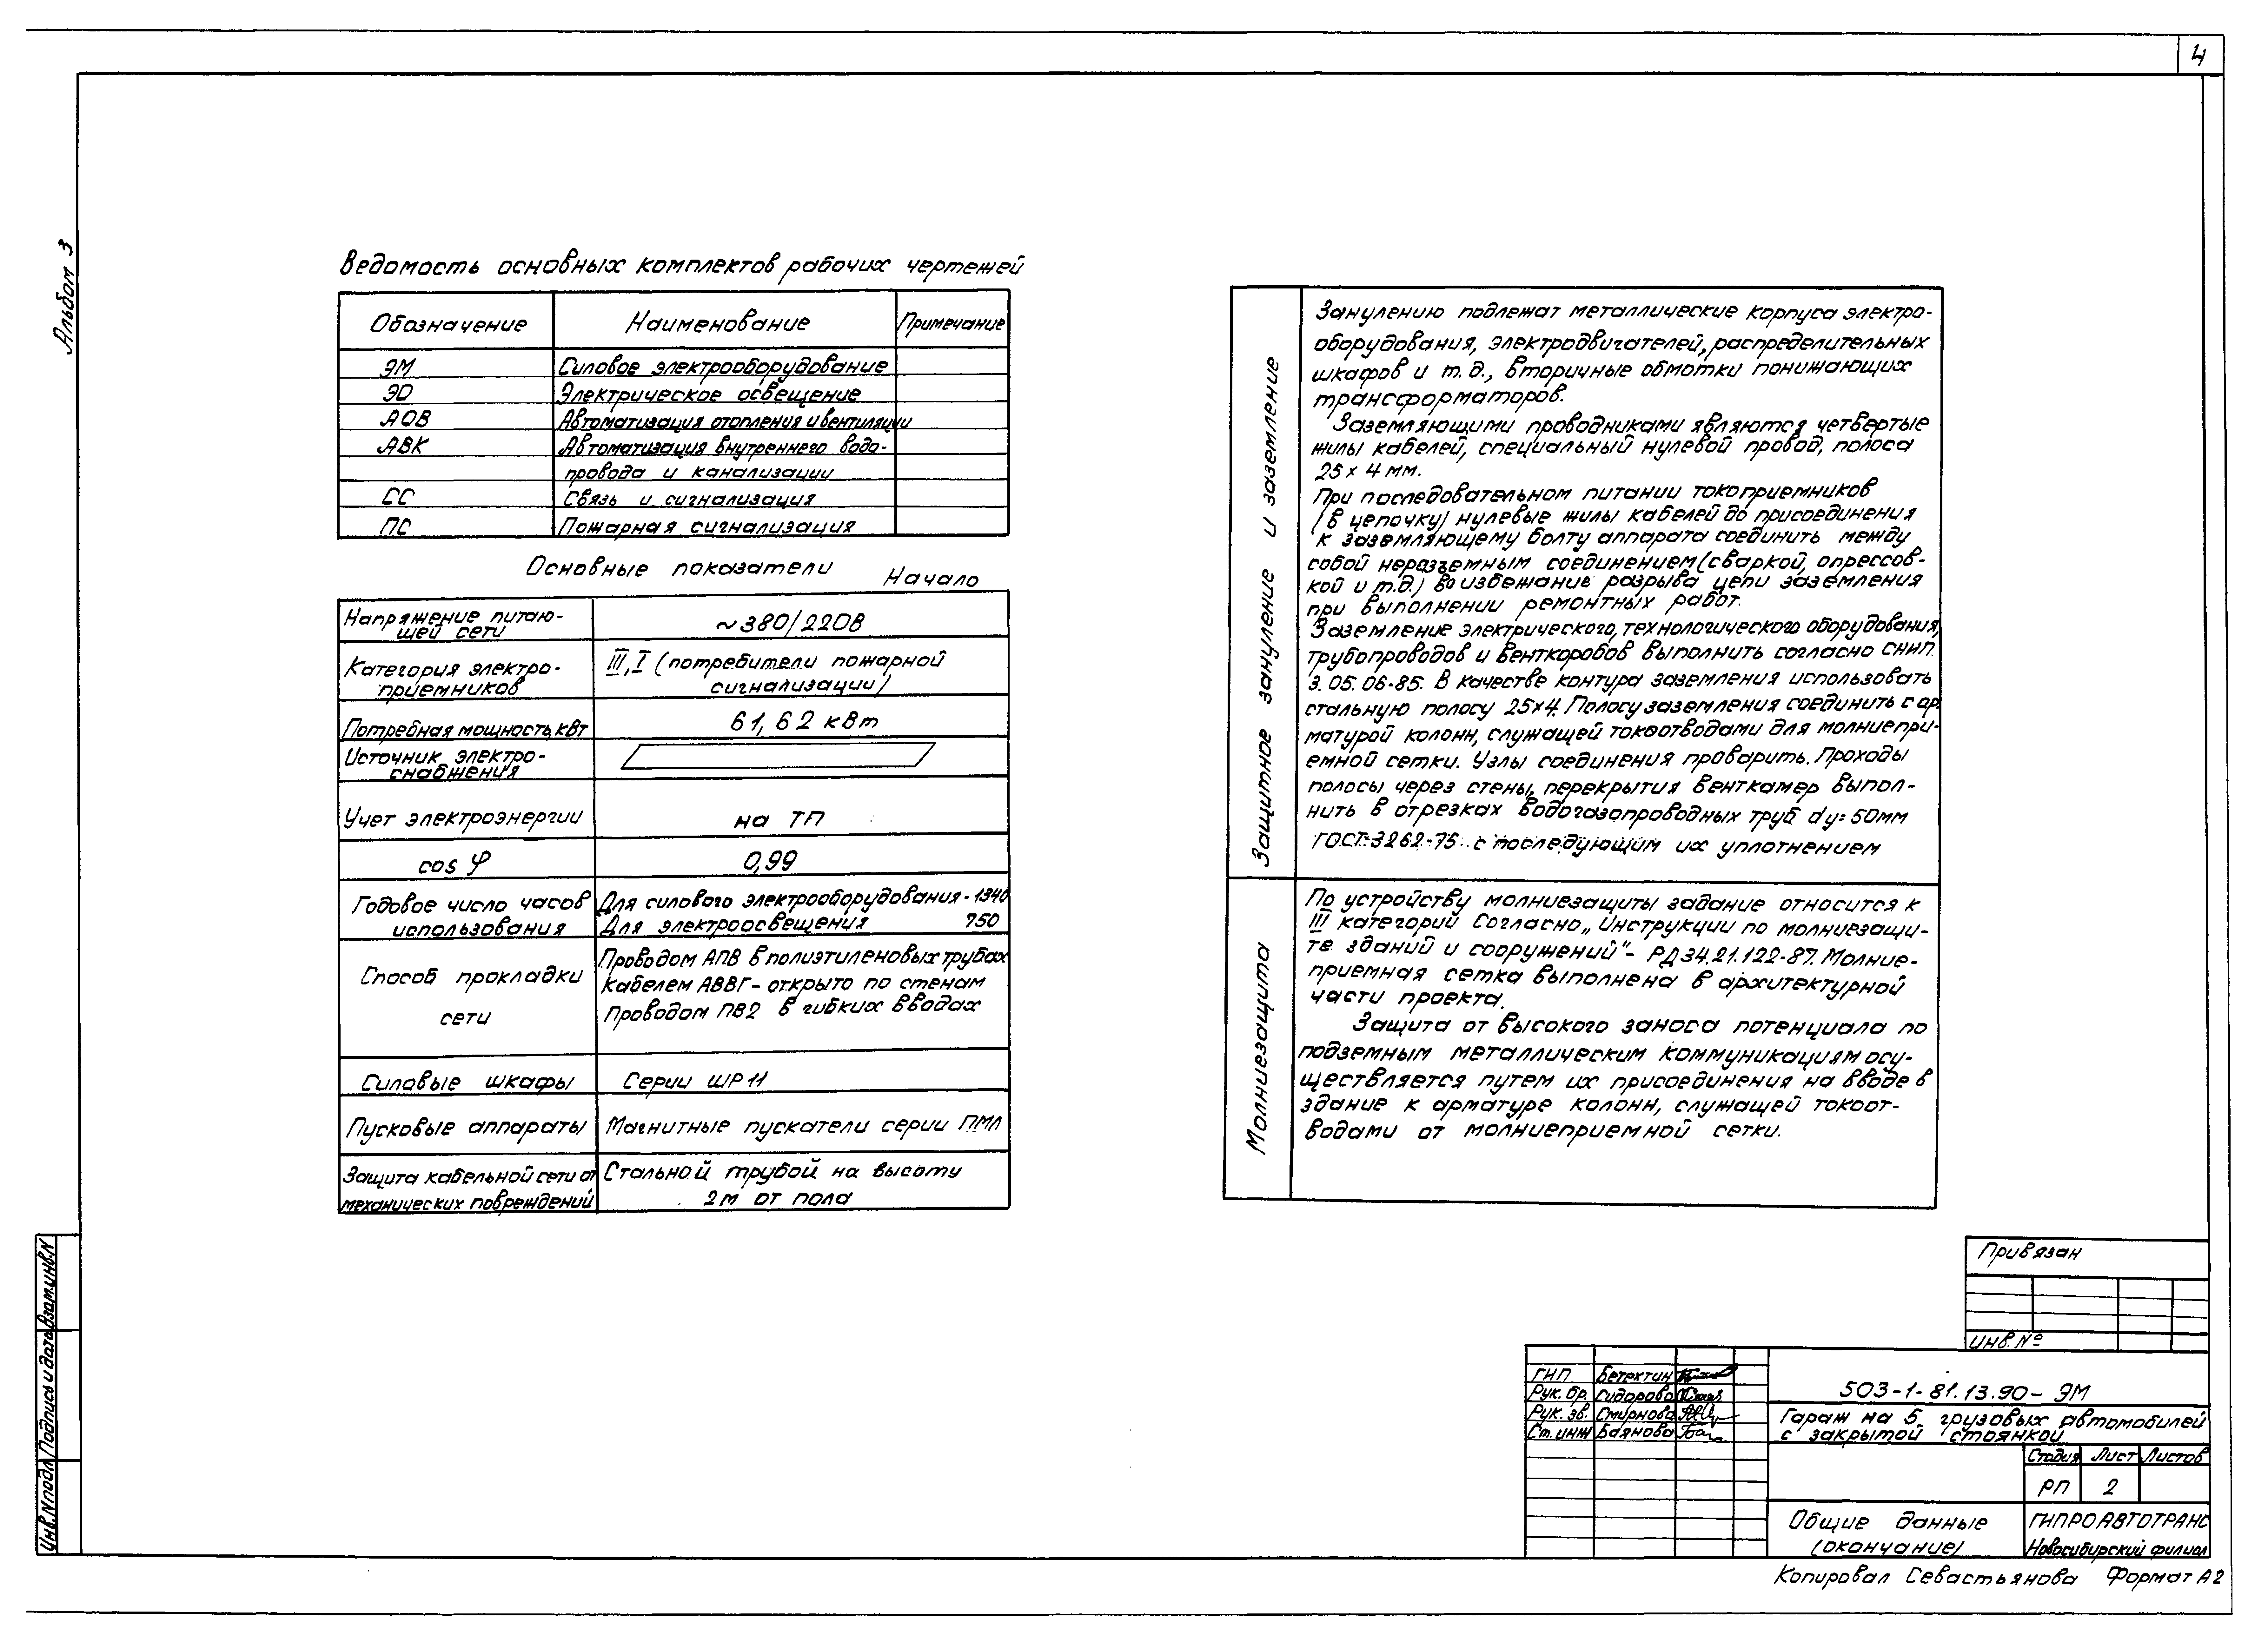 4
Альбом 3
Ведомость основных комплектов рабочих чертежей
Обозначение Наименование Примечание
ЭМ Силовое электрооборудование
ЭО Электрическое освещение
АОВ Автоматизация отопления и вентиляции
АВК Автоматизация внутреннего водо-
провода и канализации
СС Связь и сигнализация
ПС Пожарная сигнализация
Основные показатели
Начало
Напряжение питаю-
щей сети
~380/220В
Категория электро-
приемников
III, I (потребители пожарной
сигнализации)
Потребная мощность, кВт
61,62 кВт
Источник электро-
снабжения
Учет электроэнергии
на ТП
cos φ
0,99
Годовое число часов
использования
Для силового электрооборудования - 1340
Для электроосвещения 750
Способ прокладки
сети
Проводом АПВ в полиэтиленовых трубах
Кабелем АВВГ - открыто по стенам
Проводом ПВ2 в гибких вводах
Силовые шкафы
Серии ШР11
Пусковые аппараты
Магнитные пускатели серии ПМЛ
Защита кабельной сети от
механических повреждений
Стальной трубой на высоту
2м от пола
Защитное зануление и заземление
Занулению подлежат металлические корпуса электро-
оборудования, электродвигателей, распределительных
шкафов и т.д., вторичные обмотки понижающих
трансформаторов.
Заземляющими проводниками являются четвертые
жилы кабелей, специальный нулевой провод, полоса
25х4мм.
При последовательном питании токоприемников
(в цепочку) нулевые жилы кабелей до присоединения
к заземляющему болту аппарата соединить между
собой неразъемным соединением (сваркой, опрессов-
кой и т.д.) во избежание разрыва цепи заземления
при выполнении ремонтных работ.
Заземление электрического, технологического оборудования,
трубопроводов и венткоробов выполнить согласно СНиП
3.05.06-85. В качестве контура заземления использовать
стальную полосу 25х4. Полосу заземления соединить с ар
матурой колонн, служащей токоотводами для молниепри-
емной сетки. Узлы соединения проварить. Проходы
полосы через стены, перекрытия венткамер выпол-
нить в отрезках водогазопроводных труб dу=50мм
ГОСТ-3262-75 с последующим их уплотнением
Молниезащита
По устройству молниезащиты здание относится к
III категории Согласно „Инструкции по молниезащи-
те зданий и сооружений"- РД34.21.122-87. Молние-
приемная сетка выполнена в архитектурной
части проекта.
Защита от высокого заноса потенциала по
подземным металлическим коммуникациям осу-
ществляется путем их присоединения на вводе в
здание к арматуре колонн, служащей токоот-
водами от молниеприемной сетки.
Взам.инв.N
Подпись и дата
Инв.N подл
Привязан
Инв. №
ГИП Бетехтин
Рук. бр. Сидорова
Рук. зв. Смирнова
Ст. инж Баянова
503-1-81.13.90- ЭМ
Гараж на 5 грузовых автомобилей
с закрытой стоянкой
Стадия Лист Листов
РП 2
Общие данные
(окончание)
ГИПРОАВТОТРАНС
Новосибирский филиал
Копировал Севастьянова Формат А2